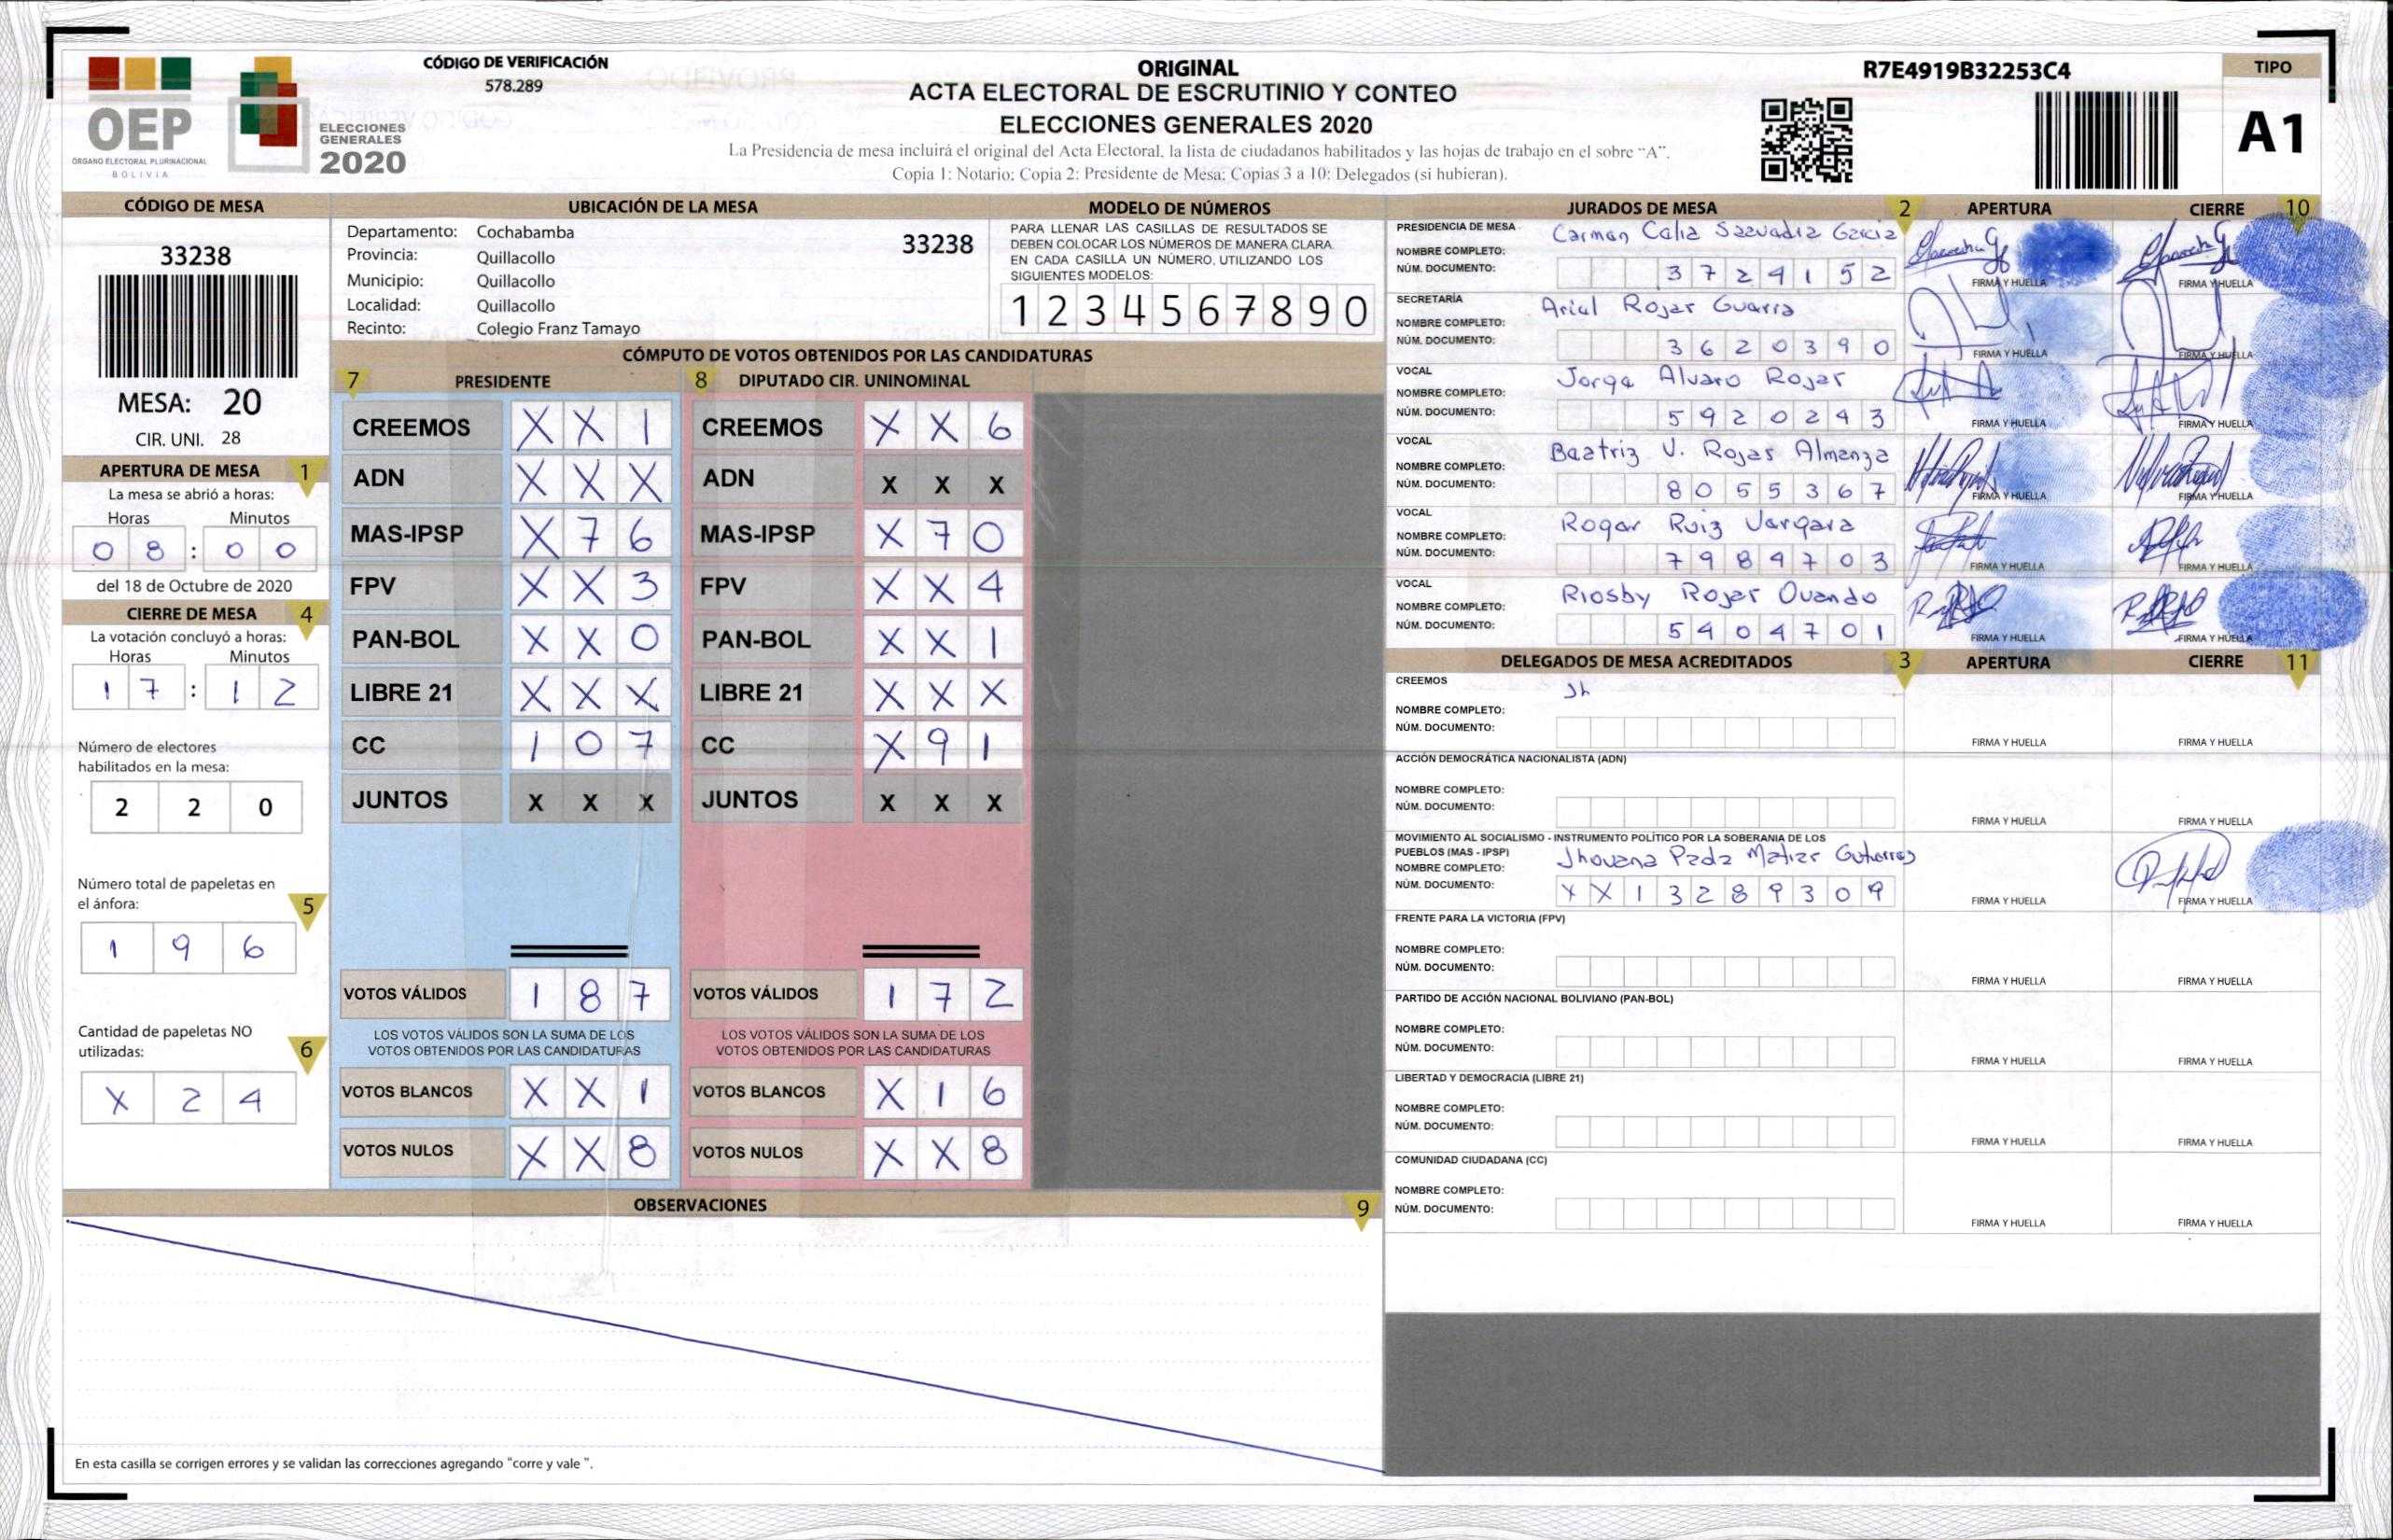 CÓDIGO DE VERIFICACIÓN
578.289
OEP
ÓRGANO ELECTORAL PLURINACIONAL
BOLIVIA
ELECCIONES
GENERALES
2020
ORIGINAL
ACTA ELECTORAL DE ESCRUTINIO Y CONTEO
ELECCIONES GENERALES 2020
La Presidencia de mesa incluirá el original del Acta Electoral, la lista de ciudadanos habilitados y las hojas de trabajo en el sobre "A".
Copia 1: Notario; Copia 2: Presidente de Mesa; Copias 3 a 10: Delegados (si hubieran).
R7E4919B32253C4
TIPO
A1
CÓDIGO DE MESA
33238
MESA: 20
CIR. UNI. 28
APERTURA DE MESA 1
La mesa se abrió a horas:
Horas Minutos
0 8 : 0 0
del 18 de Octubre de 2020
CIERRE DE MESA 4
La votación concluyó a horas:
Horas Minutos
1 7 : 1 2
Número de electores
habilitados en la mesa:
2 2 0
Número total de papeletas en
el ánfora: 5
1 9 6
Cantidad de papeletas NO
utilizadas: 6
X 2 4
UBICACIÓN DE LA MESA
Departamento: Cochabamba
Provincia: Quillacollo
Municipio: Quillacollo
Localidad: Quillacollo
Recinto: Colegio Franz Tamayo
33238
MODELO DE NÚMEROS
PARA LLENAR LAS CASILLAS DE RESULTADOS SE
DEBEN COLOCAR LOS NÚMEROS DE MANERA CLARA
EN CADA CASILLA UN NÚMERO, UTILIZANDO LOS
SIGUIENTES MODELOS:
1 2 3 4 5 6 7 8 9 0
CÓMPUTO DE VOTOS OBTENIDOS POR LAS CANDIDATURAS
7 PRESIDENTE 8 DIPUTADO CIR. UNINOMINAL
CREEMOS X X 1 CREEMOS X X 6
ADN X X X ADN X X X
MAS-IPSP X 7 6 MAS-IPSP X 7 0
FPV X X 3 FPV X X 4
PAN-BOL X X 0 PAN-BOL X X 1
LIBRE 21 X X X LIBRE 21 X X X
CC 1 0 7 CC X 9 1
JUNTOS X X X JUNTOS X X X
VOTOS VÁLIDOS 1 8 7 VOTOS VÁLIDOS 1 7 2
LOS VOTOS VÁLIDOS SON LA SUMA DE LOS LOS VOTOS VÁLIDOS SON LA SUMA DE LOS
VOTOS OBTENIDOS POR LAS CANDIDATURAS VOTOS OBTENIDOS POR LAS CANDIDATURAS
VOTOS BLANCOS X X 1 VOTOS BLANCOS X 1 6
VOTOS NULOS X X 8 VOTOS NULOS X X 8
OBSERVACIONES 9
En esta casilla se corrigen errores y se validan las correcciones agregando "corre y vale".
JURADOS DE MESA 2 APERTURA CIERRE 10
PRESIDENCIA DE MESA Carman Calia García
NOMBRE COMPLETO:
NÚM. DOCUMENTO: 3 7 2 4 1 5 2 FIRMA Y HUELLA FIRMA Y HUELLA
SECRETARÍA Arial Rojas Guarra
NOMBRE COMPLETO:
NÚM. DOCUMENTO: 3 6 2 0 3 9 0 FIRMA Y HUELLA FIRMA Y HUELLA
VOCAL Jorga Alvaro Rojas
NOMBRE COMPLETO:
NÚM. DOCUMENTO: 5 9 2 0 2 4 3 FIRMA Y HUELLA FIRMA Y HUELLA
VOCAL Baatriz V. Rojas Almanza
NOMBRE COMPLETO:
NÚM. DOCUMENTO: 8 0 5 5 3 6 7 FIRMA Y HUELLA FIRMA Y HUELLA
VOCAL Rogar Ruiz Vargara
NOMBRE COMPLETO:
NÚM. DOCUMENTO: 7 9 8 4 7 0 3 FIRMA Y HUELLA FIRMA Y HUELLA
VOCAL Riosby Rojas Ovando
NOMBRE COMPLETO:
NÚM. DOCUMENTO: 5 4 0 4 7 0 1 FIRMA Y HUELLA FIRMA Y HUELLA
DELEGADOS DE MESA ACREDITADOS 3 APERTURA CIERRE 11
CREEMOS Jh
NOMBRE COMPLETO:
NÚM. DOCUMENTO: FIRMA Y HUELLA FIRMA Y HUELLA
ACCIÓN DEMOCRÁTICA NACIONALISTA (ADN)
NOMBRE COMPLETO:
NÚM. DOCUMENTO: FIRMA Y HUELLA FIRMA Y HUELLA
MOVIMIENTO AL SOCIALISMO - INSTRUMENTO POLÍTICO POR LA SOBERANIA DE LOS
PUEBLOS (MAS - IPSP) Jhovana Matias
NOMBRE COMPLETO:
NÚM. DOCUMENTO: X X 1 3 2 8 9 3 0 9 FIRMA Y HUELLA FIRMA Y HUELLA
FRENTE PARA LA VICTORIA (FPV)
NOMBRE COMPLETO:
NÚM. DOCUMENTO: FIRMA Y HUELLA FIRMA Y HUELLA
PARTIDO DE ACCIÓN NACIONAL BOLIVIANO (PAN-BOL)
NOMBRE COMPLETO:
NÚM. DOCUMENTO: FIRMA Y HUELLA FIRMA Y HUELLA
LIBERTAD Y DEMOCRACIA (LIBRE 21)
NOMBRE COMPLETO:
NÚM. DOCUMENTO: FIRMA Y HUELLA FIRMA Y HUELLA
COMUNIDAD CIUDADANA (CC)
NOMBRE COMPLETO:
NÚM. DOCUMENTO: FIRMA Y HUELLA FIRMA Y HUELLA